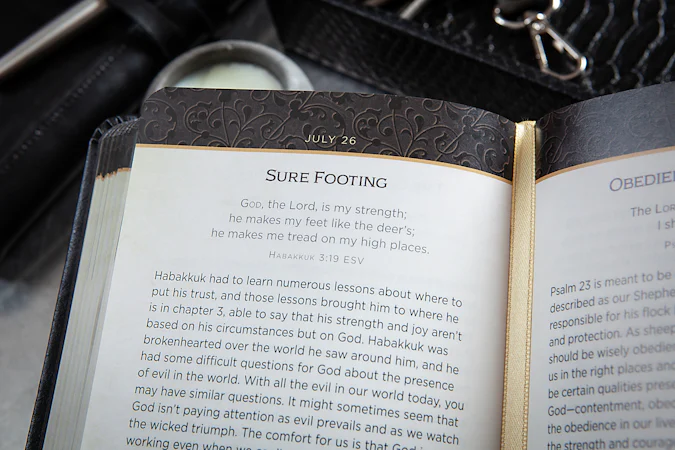 JULY 26
SURE FOOTING
GOD, the Lord, is my strength;
he makes my feet like the deer's;
he makes me tread on my high places.
HABAKKUK 3:19 ESV
Habakkuk had to learn numerous lessons about where to
put his trust, and those lessons brought him to where he
is in chapter 3, able to say that his strength and joy aren't
based on his circumstances but on God. Habakkuk was
brokenhearted over the world he saw around him, and he
had some difficult questions for God about the presence
of evil in the world. With all the evil in our world today, you
may have similar questions. It might sometimes seem that
God isn't paying attention as evil prevails and as we watch
the wicked triumph. The comfort for us is that God
working even when we
The
I
Psalm 23 is meant to be
described as our Shephe
responsible for his flock
and protection. As sheep
should be wisely obedie
us in the right places and
be certain qualities prese
God—contentment, obed
the obedience in our live
the strength and courag